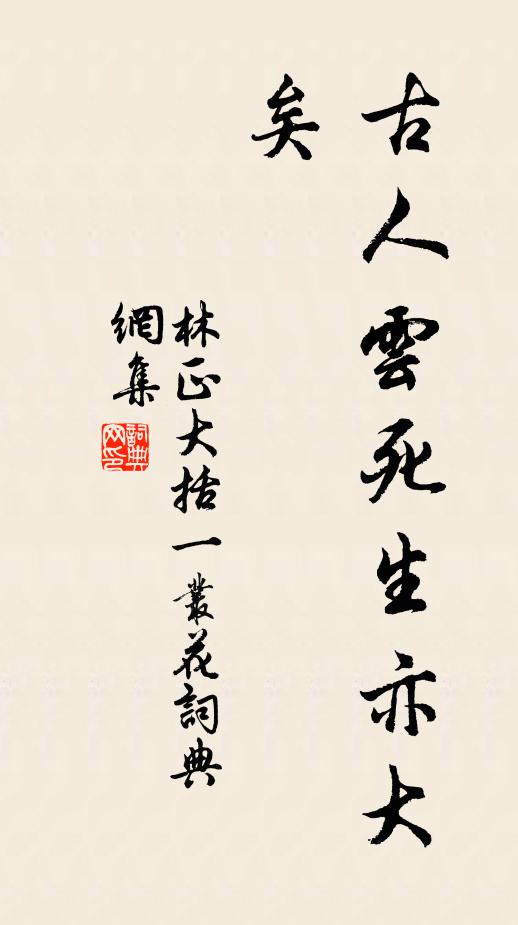 古人雲死生亦大
矣
林正大括一叢花詞典
網集
詞典
网印